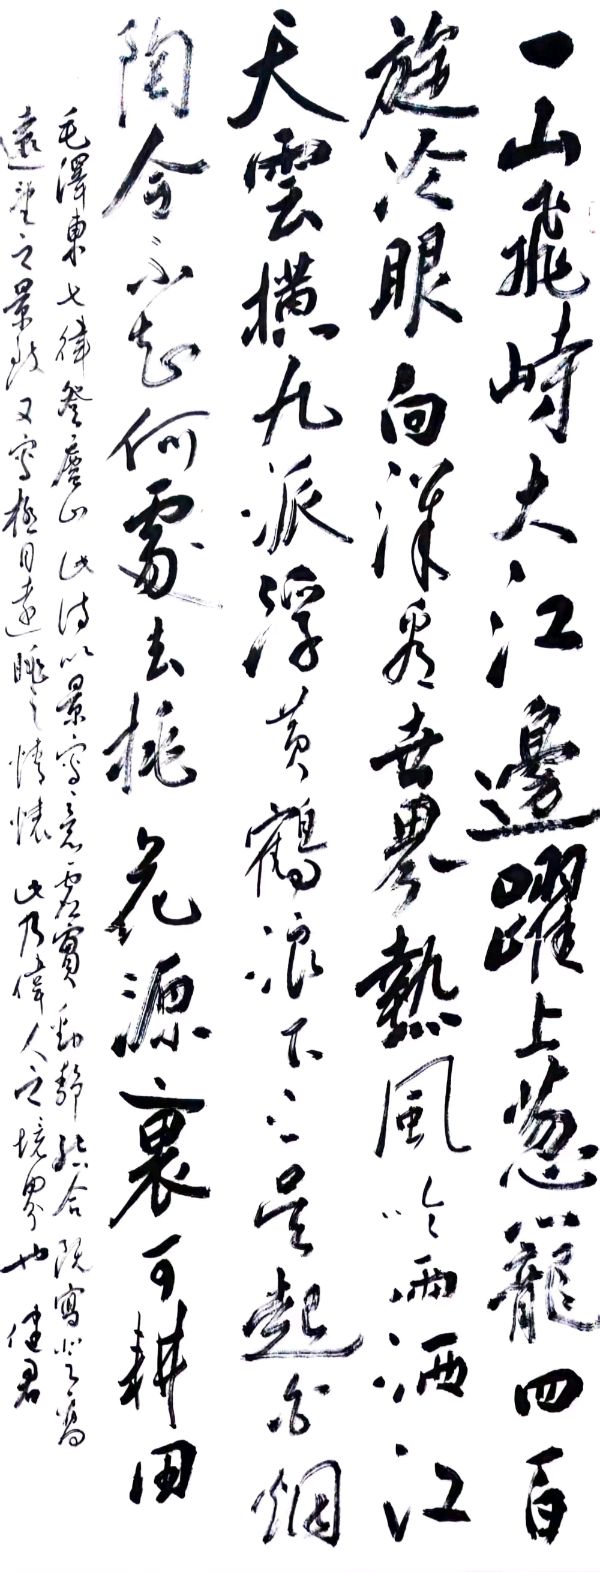 一山飛峙大江邊躍上葱蘢四百
旋冷眼向洋看世界熱風吹雨洒江
天雲橫九派浮黃鶴浪下三吳起白烟
陶令不知何處去桃花源裏可耕田
毛澤東七律登廬山此詩以景寫意虛實動靜結合既寫登高
遠望之景致又寫極目遠眺之情懷此乃偉人之境界也健君